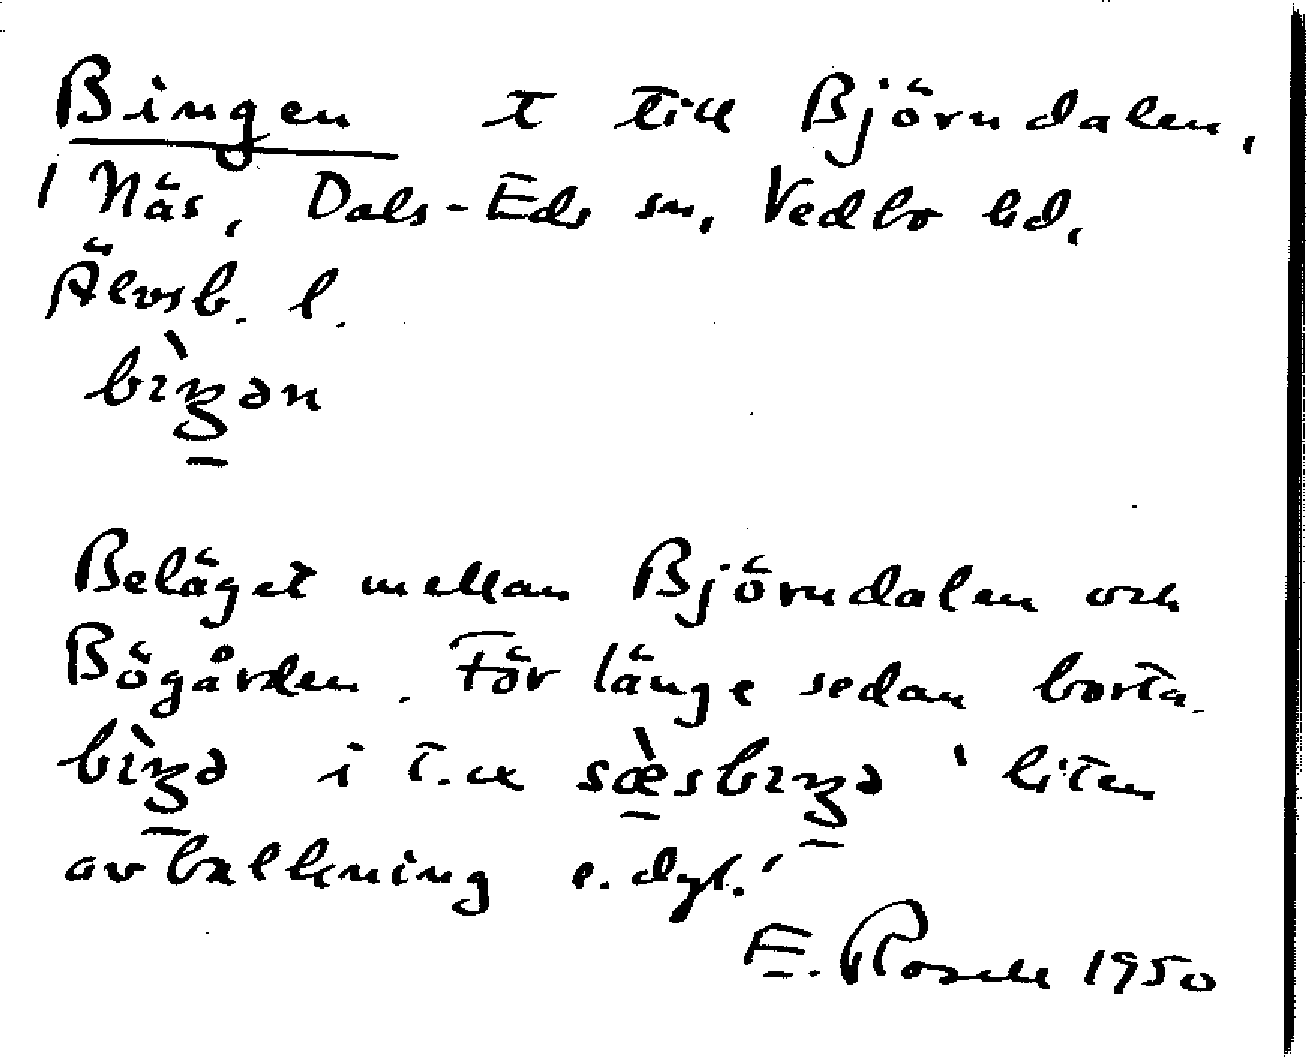 Bingen t till Björndalen,
1 Näs, Dals-Eds sn, Vedbo hd,
Älvsb. l.
bìŋən
Beläget mellan Björndalen och
Bögården. För länge sedan borta.
bìŋə i t.ex sæ̀sbɪŋə 'liten
avbalkning e. dyl.'
E. Rosell 1950